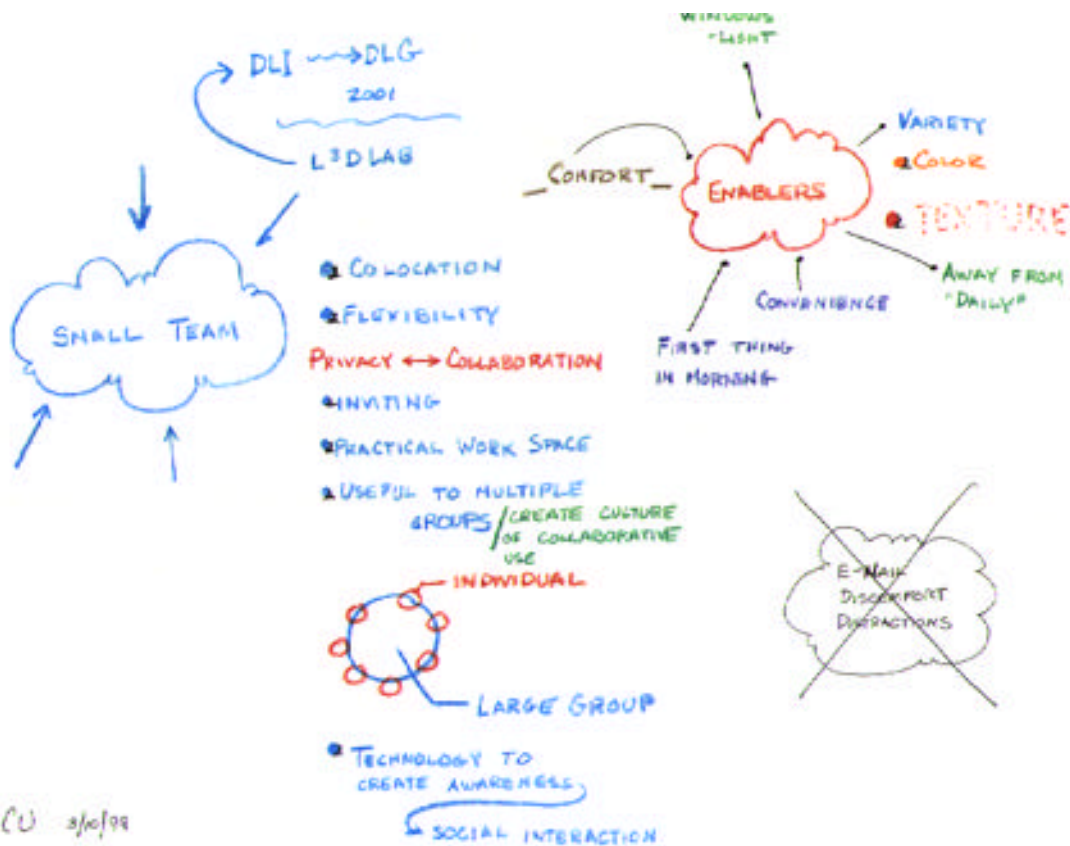 DLI → DLG
2001
L³DLAB
SMALL TEAM
COLOCATION
FLEXIBILITY
PRIVACY ↔ COLLABORATION
INVITING
PRACTICAL WORK SPACE
USEFUL TO MULTIPLE
GROUPS / CREATE CULTURE
OF COLLABORATIVE
USE
INDIVIDUAL
LARGE GROUP
TECHNOLOGY TO
CREATE AWARENESS,
SOCIAL INTERACTION
WINDOWS
-LIGHT
COMFORT
ENABLERS
VARIETY
COLOR
TEXTURE
AWAY FROM
"DAILY"
CONVENIENCE
FIRST THING
IN MORNING
E-MAIL
DISCOMFORT
DISTRACTIONS
CU 3/10/98